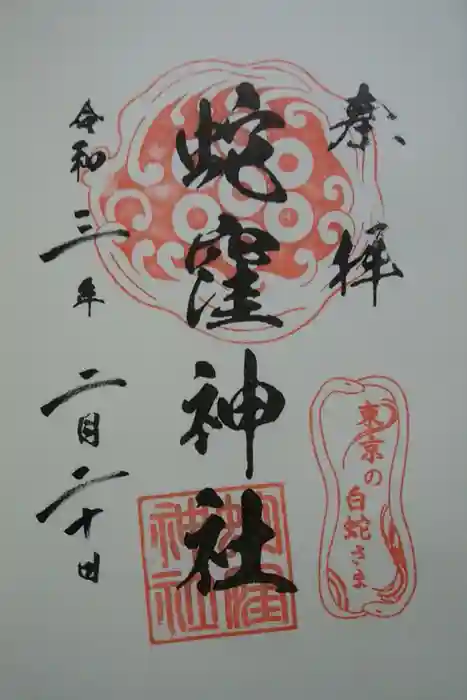 奉拝
蛇窪神社
令和三年二月二十日
東京の
白蛇さま
蛇窪
神社